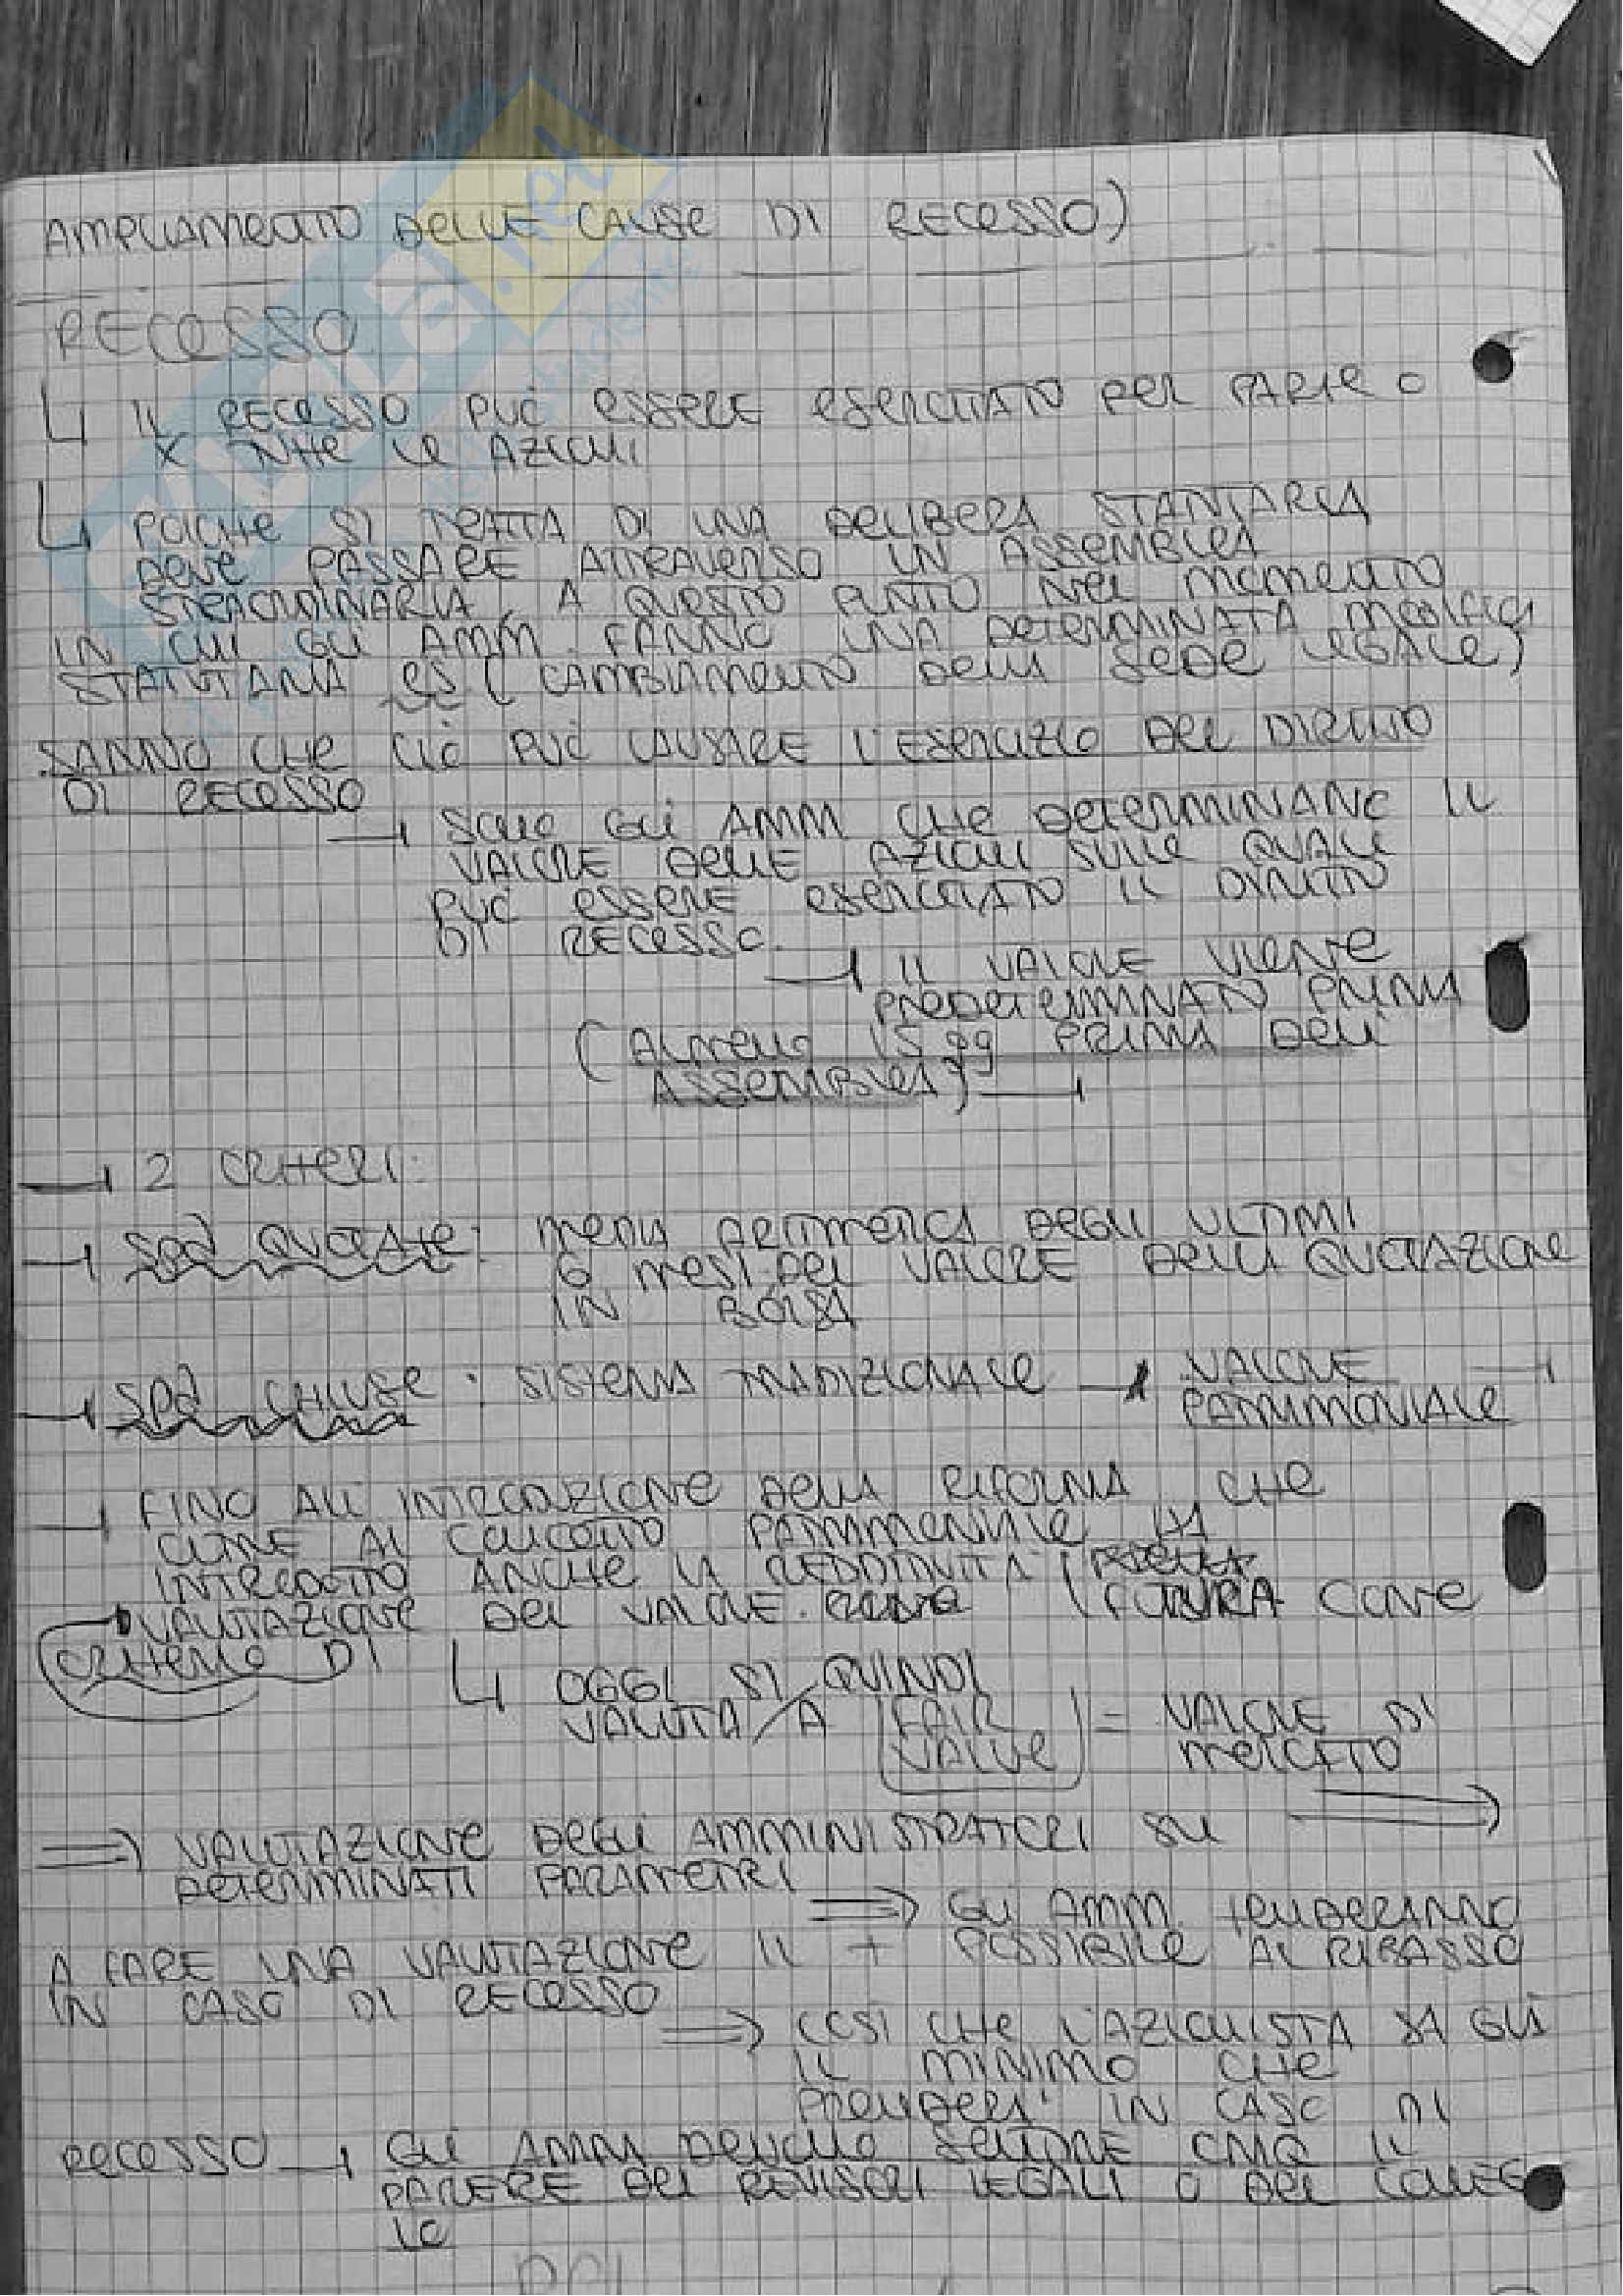 AMPLIAMENTO DELLE CAUSE DI RECESSO)
RECESSO
IL RECESSO PUÒ ESSERE ESERCITATO PER PARTE O
X TUTTE LE AZIONI
POICHE SI TRATTA DI UNA DELIBERA STANTARIA
DEVE PASSARE ATTRAVERSO UN ASSEMBLEA
STRAORDINARIA, A QUESTO PUNTO NEL MOMENTO
IN CUI GLI AMM. FANNO UNA DETERMINATA MODIFICA
STATUTARIA es (CAMBIAMENTO DELLA SEDE LEGALE)
SANNO CHE CIÒ PUÒ CAUSARE L'ESERCIZIO DEL DIRITTO
DI RECESSO
SONO GLI AMM CHE DETERMINANO IL
VALORE DELLE AZIONI SULLE QUALI
PUÒ ESSERE ESERCITATO IL DIRITTO
DI RECESSO
IL VALORE VIENE
PREDETERMINATO PRIMA
(ALMENO 15 gg PRIMA DELL'
ASSEMBLEA)
2 CRITERI:
SPA QUOTATE: MEDIA ARITMETICA DEGLI ULTIMI
6 MESI DEL VALORE DELLA QUOTAZIONE
IN BORSA
SPA CHIUSE: SISTEMA TRADIZIONALE VALORE
PATRIMONIALE
FINO ALL'INTRODUZIONE DELLA RIFORMA CHE
OLTRE AL CONCETTO PATRIMONIALE HA
INTRODOTTO ANCHE LA REDDITIVITA
VALUTAZIONE DEL VALORE (FUTURA COME
CRITERIO DI
OGGI SI QUINDI
VALUTA A FAIR = VALORE DI
VALUE MERCATO
VALUTAZIONE DEGLI AMMINISTRATORI SU
DETERMINATI PARAMETRI
GLI AMM. TENDERANNO
A FARE UNA VALUTAZIONE IL + POSSIBILE AL RIBASSO
IN CASO DI RECESSO
COSÌ CHE L'AZIONISTA SA GIÀ
IL MINIMO CHE
PRENDERÀ IN CASO DI
RECESSO GLI AMM DEVONO SENTIRE CMQ IL
PARERE DEI REVISORI LEGALI O DEL COLLEG
IO